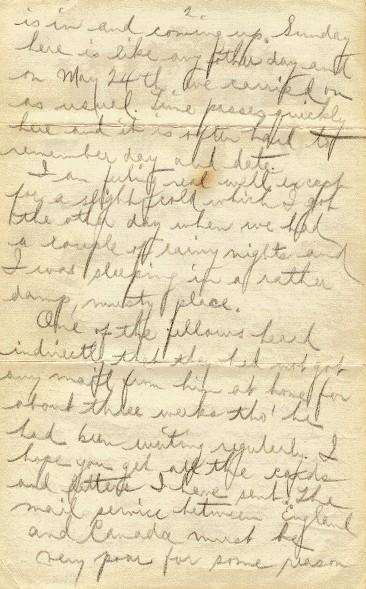 2.
is in and coming up. Sunday
here is like any other day and
on May 24th we carried on
as usual. Time passes quickly
here and it is often hard to
remember day and date.
I am feeling real well except
for a slight cold which I got
the other day when we had
a couple of rainy nights and
I was sleeping in a rather
damp, musty place.
One of the fellows heard
indirectly that they had not got
any mail from him at home for
about three weeks tho' he
had been writing regularly. I
hope you get all the cards
and letters I have sent. The
mail service between England
and Canada must be
very poor for some reason